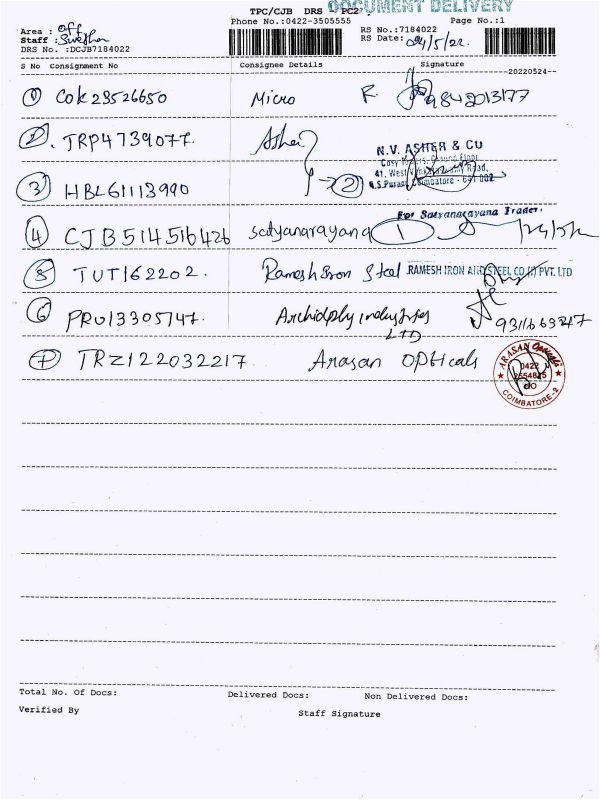 DOCUMENT DELIVERY
TPC/CJB DRS PC2
Phone No.:0422-3505555 Page No.:1
Area : Off
Staff : Swetha
DRS No. :DCJB7184022
RS No.:7184022
RS Date: 24/5/22
S No Consignment No Consignee Details Signature
20220524
1 COK23526650 Micro R. 9842013177
2. TRP4739077. Asher
N.V. ASHER & CO
Cosy Ground Floor
41, West Road,
Coimbatore - 641 002
3 HBL61113990 → 2
For Satyanarayana Trader.
4 CJB514516426 satyanarayana 1
5 TUT162202. Ramesh Iron Steel RAMESH IRON AND STEEL CO (I) PVT. LTD
6 PRU13305747. Archidply industries
LTD
7 TRZ122032217. Arasan Opticals
ARASAN Opticals
0422
COIMBATORE-2
Total No. Of Docs: Delivered Docs: Non Delivered Docs:
Verified By Staff Signature